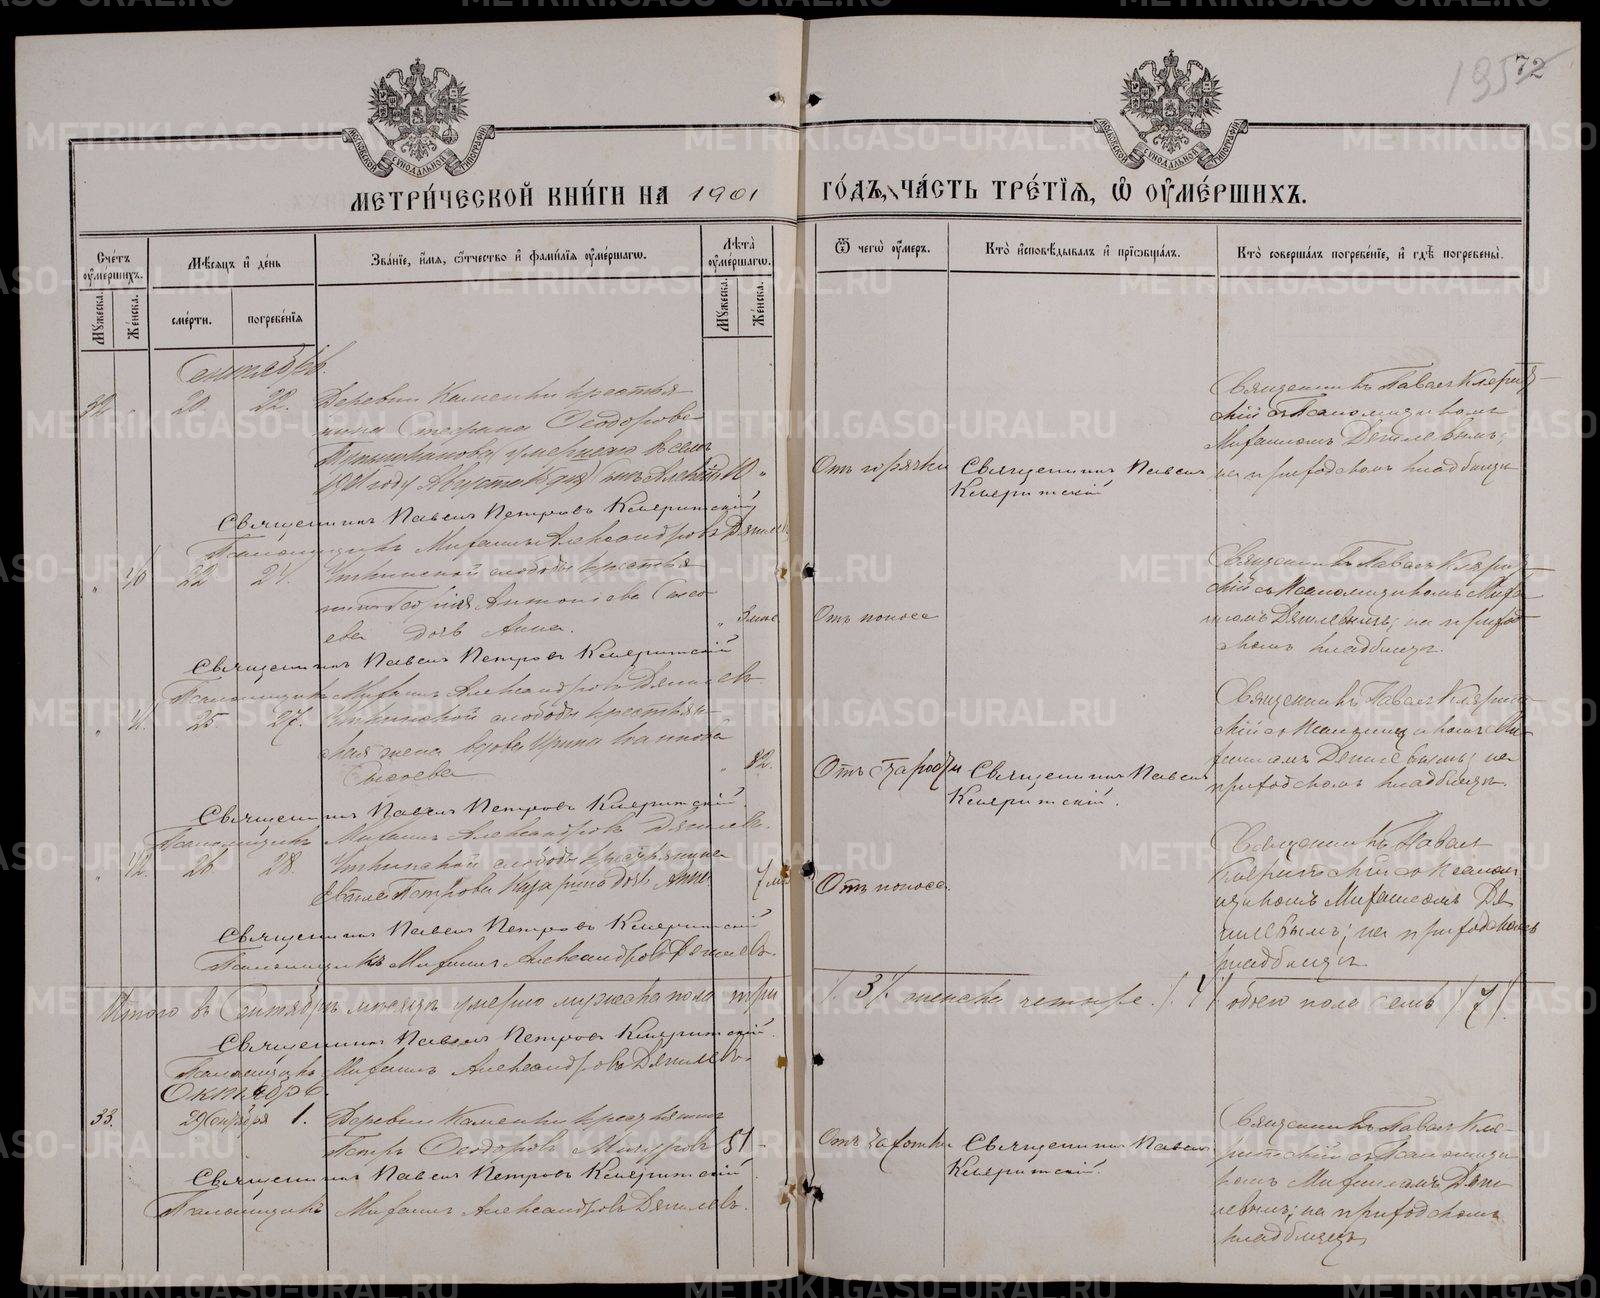 195 72
МОСКОВСКОЙ СѴНОДАЛЬНОЙ ТИПОГРАФІИ
МОСКОВСКОЙ СѴНОДАЛЬНОЙ ТИПОГРАФІИ
МЕТРИ́ЧЕСКОЙ КНИ́ГИ НА 1901 ГО́ДЪ, ЧА́СТЬ ТРЕ́ТІѦ, Ѽ ОУМЕ́РШИХЪ.
Сче́тъ оумершихъ.
Мужеска.
Же́нска.
Мѣсяцъ и де́нь
сме́рти.
погребе́нїѧ
Зва́нїе, и́мѧ, ѻтчество и фами́лїѧ оуме́ршагѡ.
Лѣта̀ оуме́ршагѡ.
Мужеска.
Же́нска.
Ѿ чегѡ̀ оумеръ.
Кто̀ исповѣдывалъ и прїѡбща́лъ.
Кто̀ соверша́лъ погребе́нїе, и гдѣ погребены̀.
Сентябрь.
32 " 20 22. Деревни Каменки крестья-
нина Стефана Ѳеодорова
умершаго въ семъ
1901 году Августа сынъ Алексѣй 10 "
Отъ горячки
Священникъ Павелъ Кляритскій
Священникъ Павелъ Клярит-
скій съ Псаломщикомъ
Михаиломъ Дягилевымъ;
на приходскомъ кладбищѣ
Священникъ Павелъ Петровъ Кляритскій
Псаломщикъ Михаилъ Александровъ Дягилевъ
" 40 22 24. Уткинской слободы крестья-
нина Георгія Антоніева Сысо-
ева дочь Анна. " 3 мес.
Отъ поноса
Священникъ Павелъ Клярит-
скій съ Псаломщикомъ Миха-
иломъ Дягилевымъ; на приход-
скомъ кладбищѣ.
Священникъ Павелъ Петровъ Кляритскій
Псаломщикъ Михаилъ Александровъ Дягилевъ.
" 41. 25. 27. Уткинской слободы крестьян-
ская жена вдова Ирина Іоаннова
Сысоева " 82.
Отъ старости
Священникъ Павелъ Кляритскій.
Священникъ Павелъ Клярит-
скій съ Псаломщикомъ Ми-
хаиломъ Дягилевымъ; на
приходскомъ кладбищѣ.
Священникъ Павелъ Петровъ Кляритскій.
Псаломщикъ Михаилъ Александровъ Дягилевъ.
" 42. 26 28. Уткинской слободы крестьянина
Петрова Казарина дочь Анна. 7 мѣс
Отъ поноса.
Священникъ Павелъ
Кляритскій съ Псалом-
щикомъ Михаиломъ Дя-
гилевымъ; на приходскомъ
кладбищѣ.
Священникъ Павелъ Петровъ Кляритскій
Псаломщикъ Михаилъ Александровъ Дягилевъ.
Итого въ Сентябрѣ мѣсяцѣ умерло мужеска пола три /. 3/. женска четыре. /. 4/. обоего пола семь /. 7/.
Священникъ Павелъ Петровъ Кляритскій.
Псаломщикъ Михаилъ Александровъ Дягилевъ.
Октябрь.
33. 29 Сентября 1. Деревни Каменки крестьянинъ
Петръ Ѳеодоровъ 51 -
Отъ чахотки
Священникъ Павелъ Кляритскій.
Священникъ Павелъ Кля-
ритскій съ Псаломщи-
комъ Михаиломъ Дяги-
левымъ; на приходскомъ
кладбищѣ.
Священникъ Павелъ Петровъ Кляритскій
Псаломщикъ Михаилъ Александровъ Дягилевъ.
METRIKI.GASO-URAL.RU